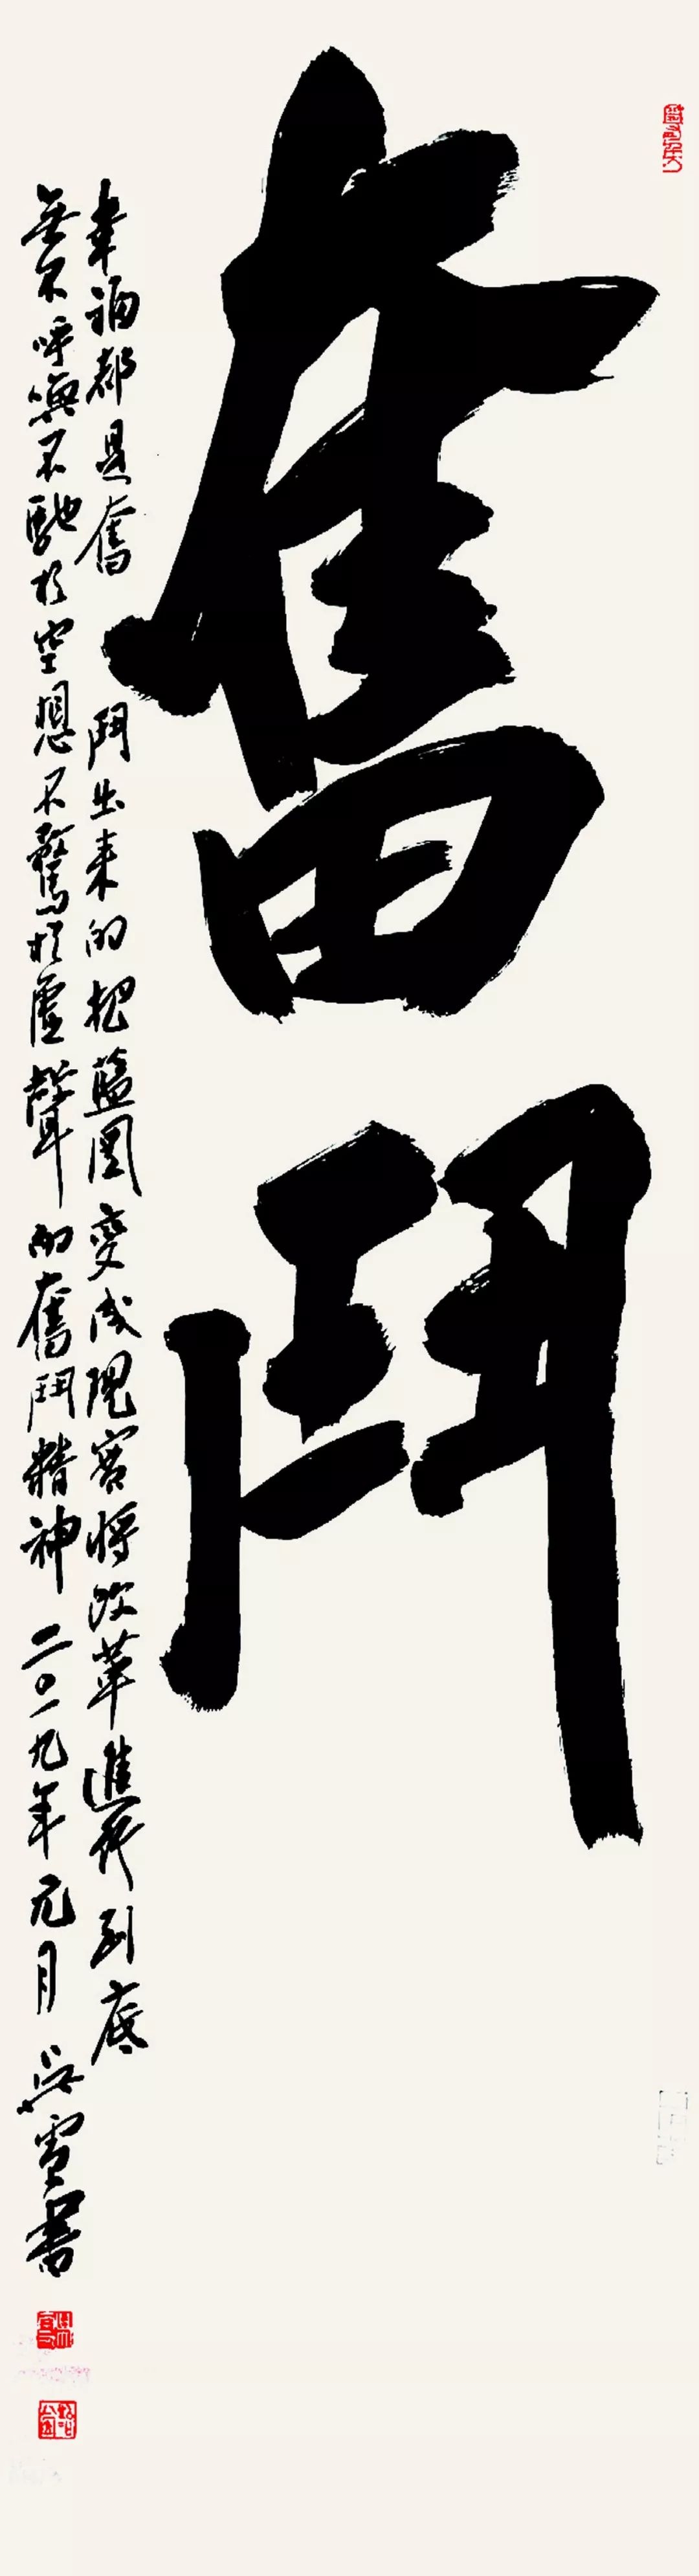 奮鬥
幸福都是奮鬥出来的把藍圖變成現實將改革進行到底
無不呼喚不馳於空想不騖於虛聲的奮鬥精神二〇一九年元月吳雪書